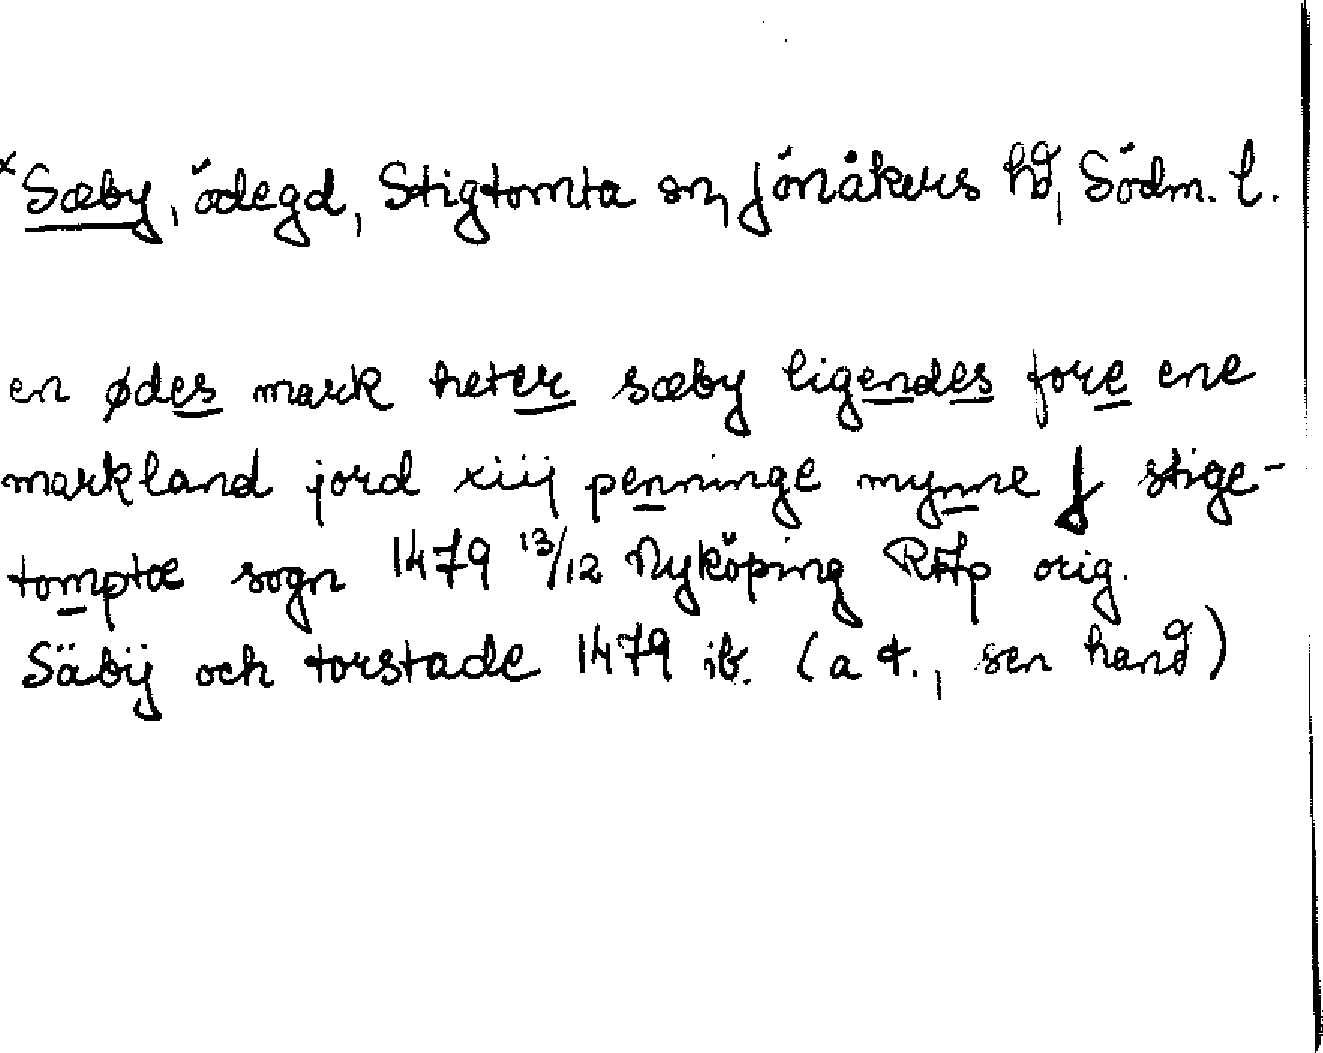 ×Sæby, ödegd, Stigtomta sn, Jönåkers hd, Södm. l.
en ødes mark heter sæby ligendes fore ene
markland jord xiij penninge mynne J stige-
tomptæ sogn 1479 13/12 Nyköping RAp orig.
Säbÿ och torstade 1479 ib. (a t., sen hand)